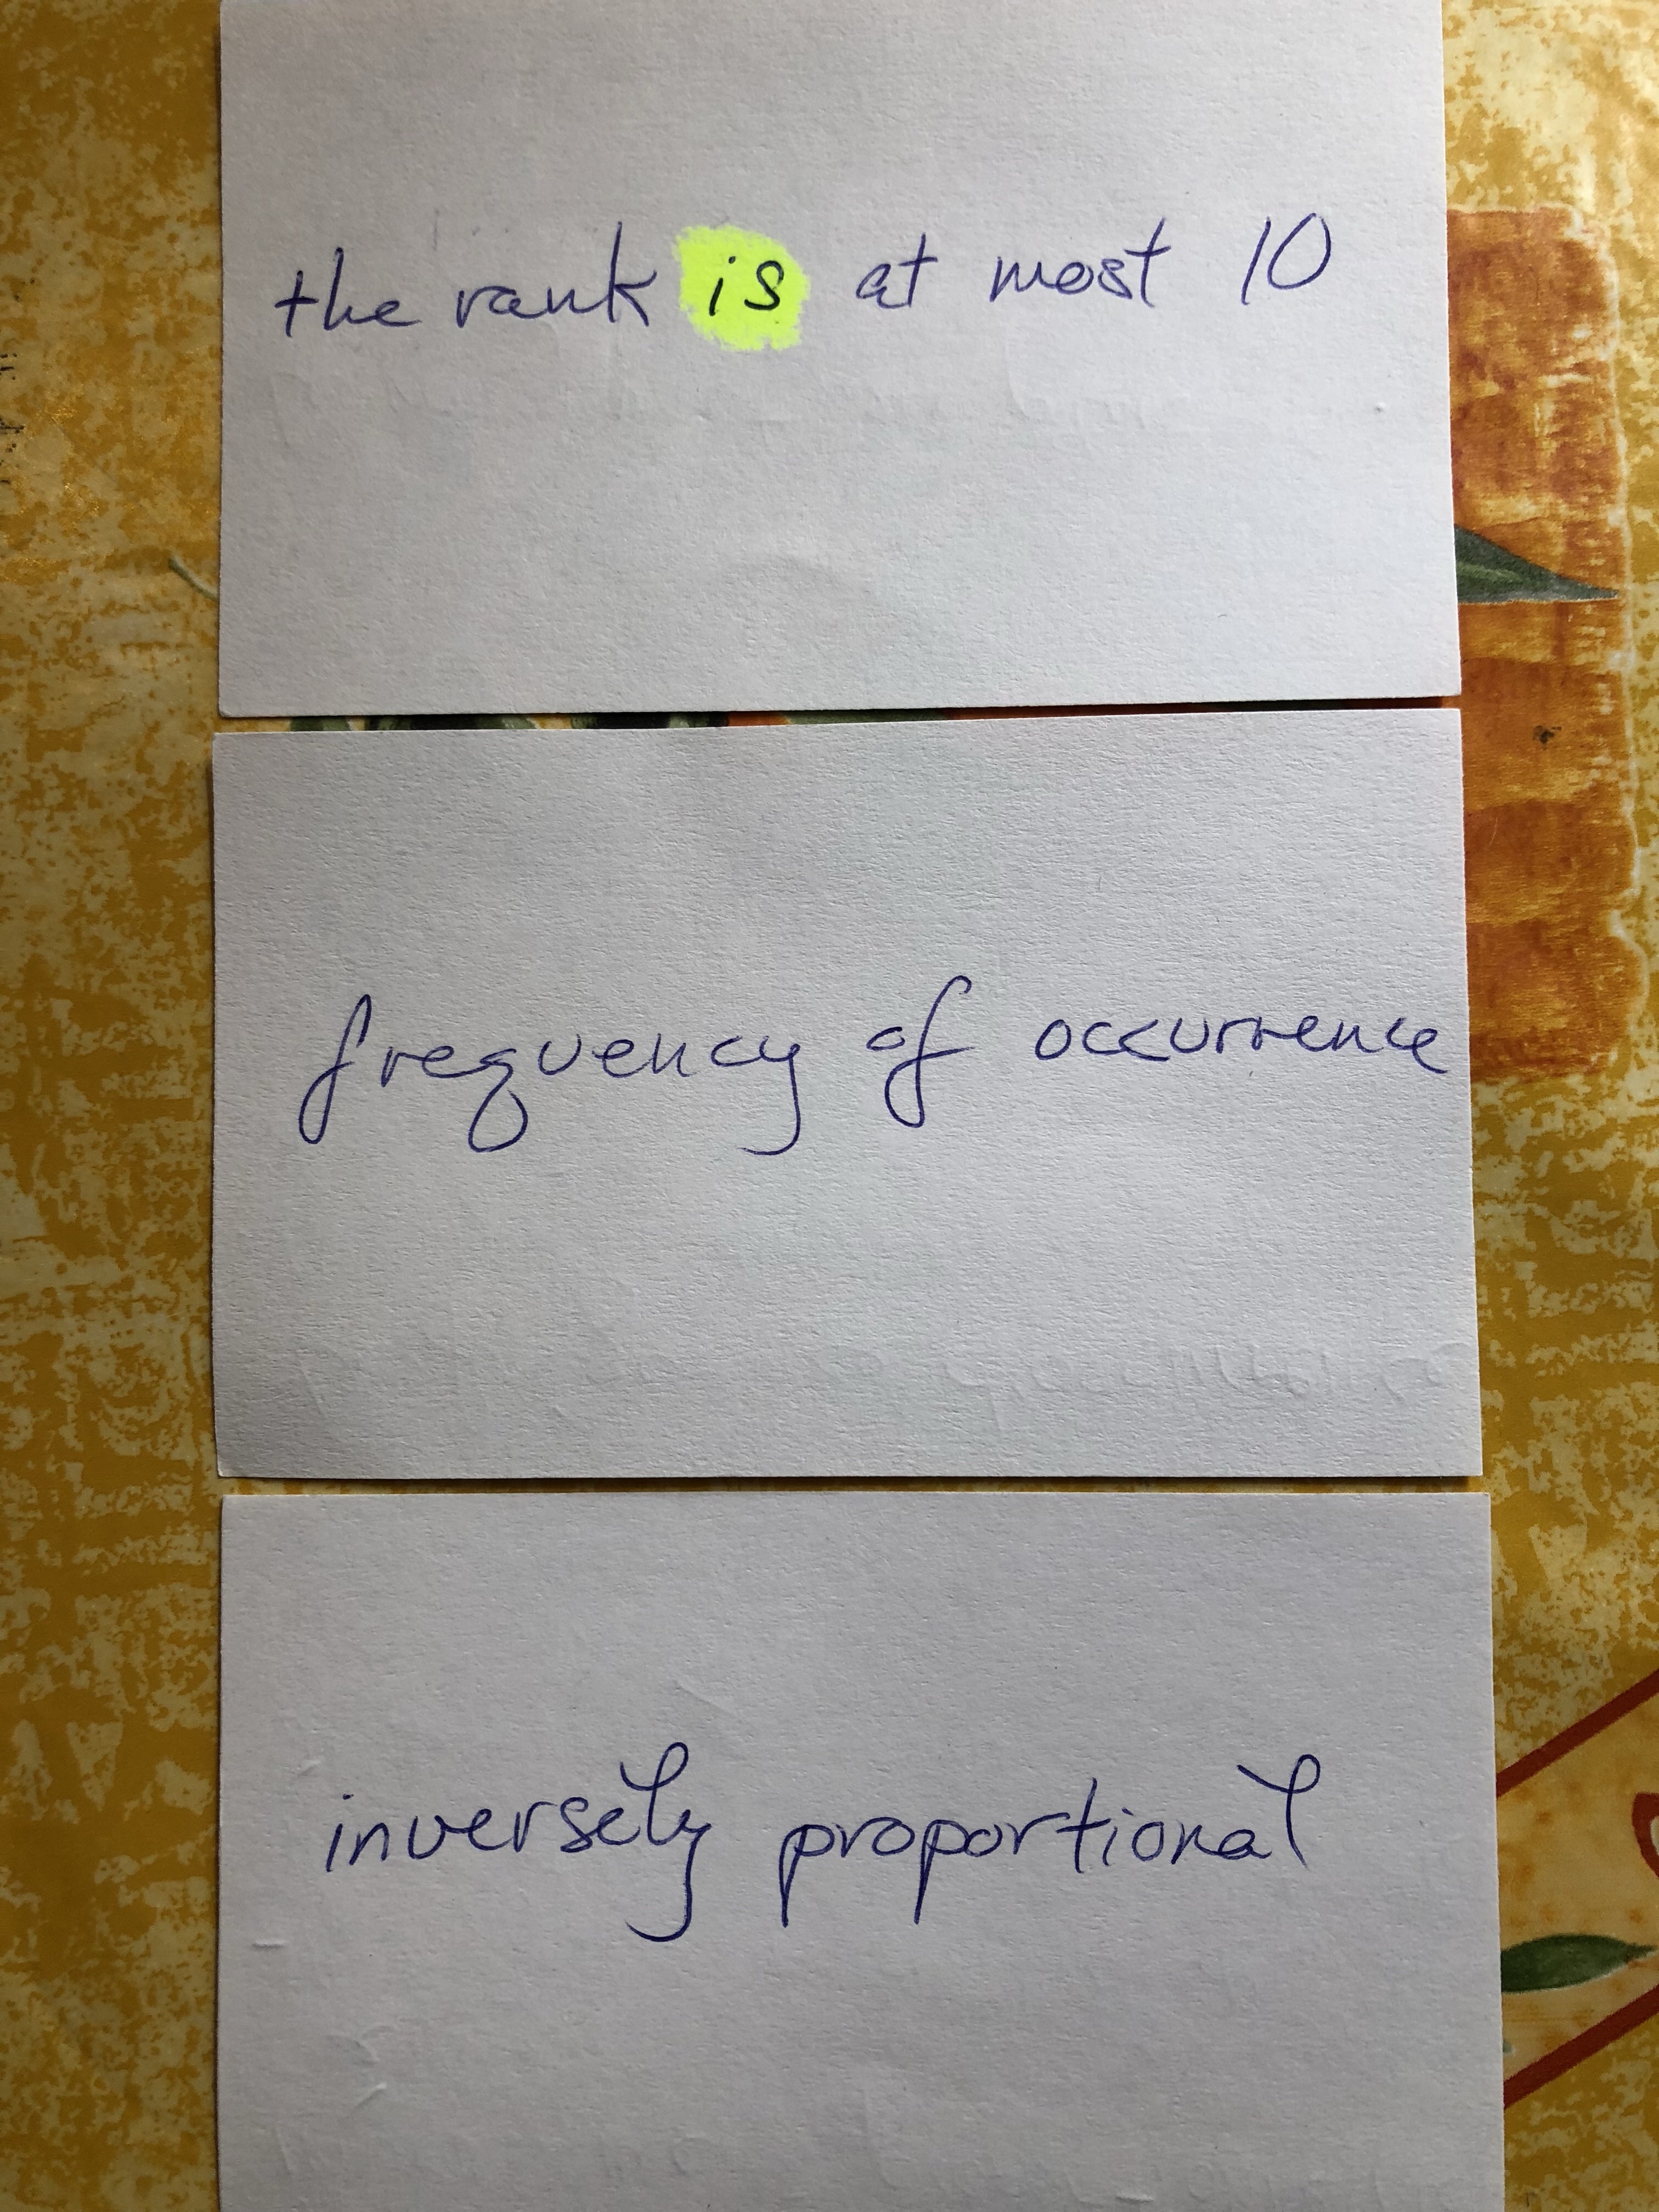 the rank is at most 10
frequency of occurrence
inversely proportional